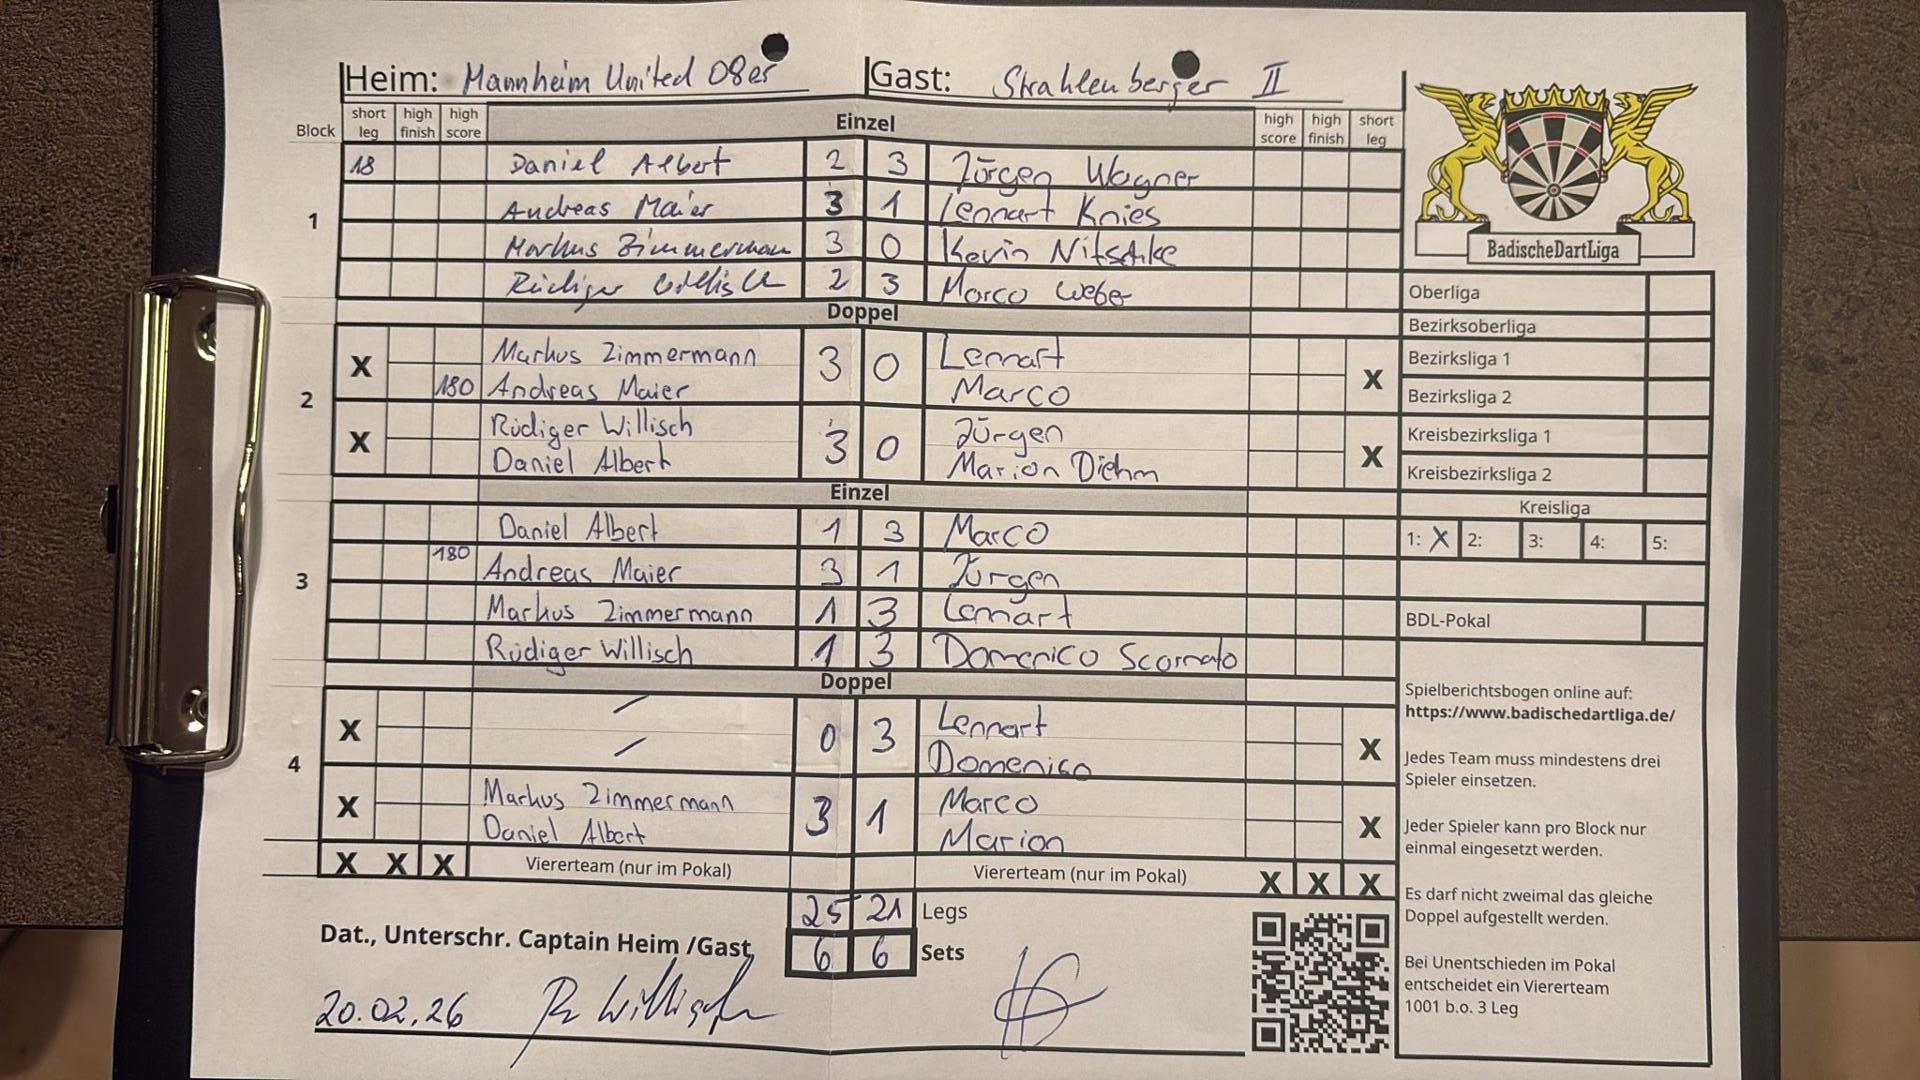 Heim: Mannheim United 08er Gast: Strahlenberger II
Block short leg high finish high score Einzel high score high finish short leg
1
18 Daniel Albert 2 3 Jürgen Wagner
Andreas Maier 3 1 Lennart Knies
Markus Zimmermann 3 0 Kevin Nitschke
Rüdiger 2 3 Marco Weber
Doppel
2
X Markus Zimmermann 3 0 Lennart X
180 Andreas Maier Marco
X Rüdiger Willisch 3 0 Jürgen X
Daniel Albert Marion Diehm
Einzel
3
Daniel Albert 1 3 Marco
180 Andreas Maier 3 1 Jürgen
Markus Zimmermann 1 3 Lennart
Rüdiger Willisch 1 3 Domenico Scornato
Doppel
4
X / 0 3 Lennart X
/ Domenico
X Markus Zimmermann 3 1 Marco X
Daniel Albert Marion
X X X Viererteam (nur im Pokal) Viererteam (nur im Pokal) X X X
25 21 Legs
Dat., Unterschr. Captain Heim /Gast 6 6 Sets
20.02.26 R. Willisch
BadischeDartLiga
Oberliga
Bezirksoberliga
Bezirksliga 1
Bezirksliga 2
Kreisbezirksliga 1
Kreisbezirksliga 2
Kreisliga
1: X 2: 3: 4: 5:
BDL-Pokal
Spielberichtsbogen online auf:
https://www.badischedartliga.de/
Jedes Team muss mindestens drei
Spieler einsetzen.
Jeder Spieler kann pro Block nur
einmal eingesetzt werden.
Es darf nicht zweimal das gleiche
Doppel aufgestellt werden.
Bei Unentschieden im Pokal
entscheidet ein Viererteam
1001 b.o. 3 Leg